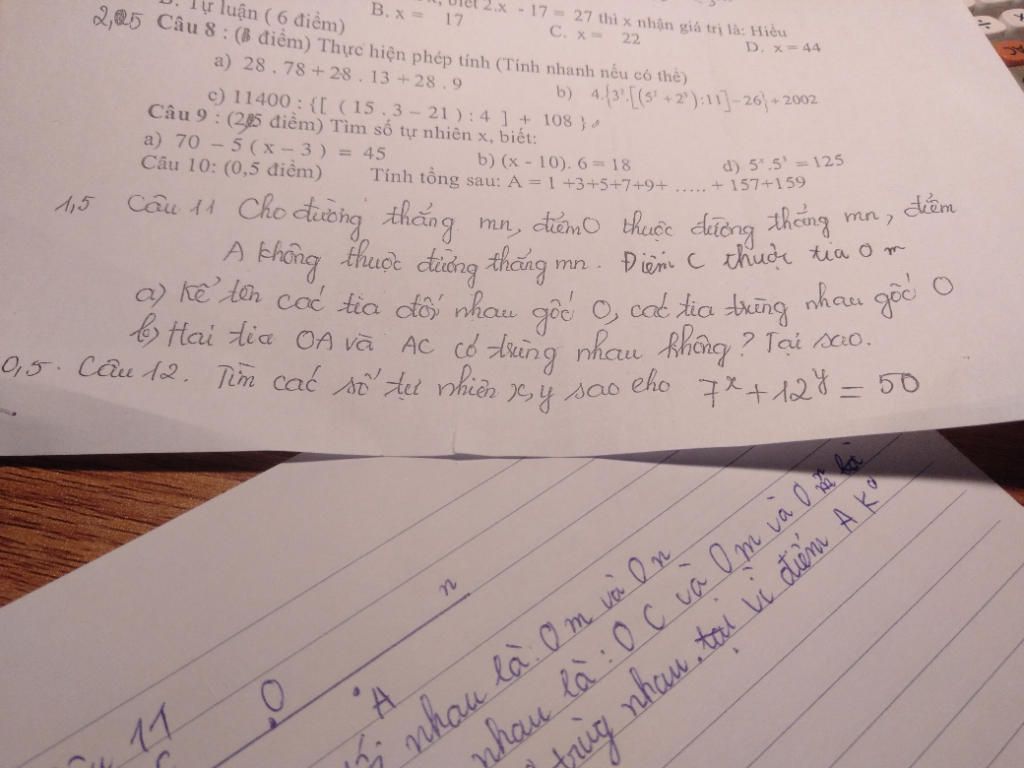 biết 2.x - 17 = 27 thì x nhận giá trị là: Hiểu
B. x = 17 C. x = 22 D. x = 44
B. Tự luận ( 6 điểm)
2,25 Câu 8 : ( điểm) Thực hiện phép tính (Tính nhanh nếu có thể)
a) 28 . 78 + 28 . 13 + 28 . 9 b) 4.{3².[(5²+2³):11]-26}+2002
c) 11400 : {[ ( 15 . 3 – 21 ) : 4 ] + 108 }
Câu 9 : (2,25 điểm) Tìm số tự nhiên x, biết:
a) 70 – 5 ( x – 3 ) = 45 b) (x - 10). 6 = 18 d) 5ˣ.5³ = 125
Câu 10: (0,5 điểm) Tính tổng sau: A = 1 +3+5+7+9+ ...... + 157+159
1,5 Câu 11 Cho đường thẳng mn, điểm O thuộc đường thẳng mn, điểm
A không thuộc đường thẳng mn. Điểm C thuộc tia Om
a) Kể tên các tia đối nhau gốc O, các tia trùng nhau gốc O
b) Hai tia OA và AC có trùng nhau không? Tại sao.
0,5. Câu 12. Tìm các số tự nhiên x,y sao cho 7ˣ + 12ʸ = 50
11
O
n
A
nhau là: Om và On
nhau là: OC và Om và On
trùng nhau. tại vì điểm A